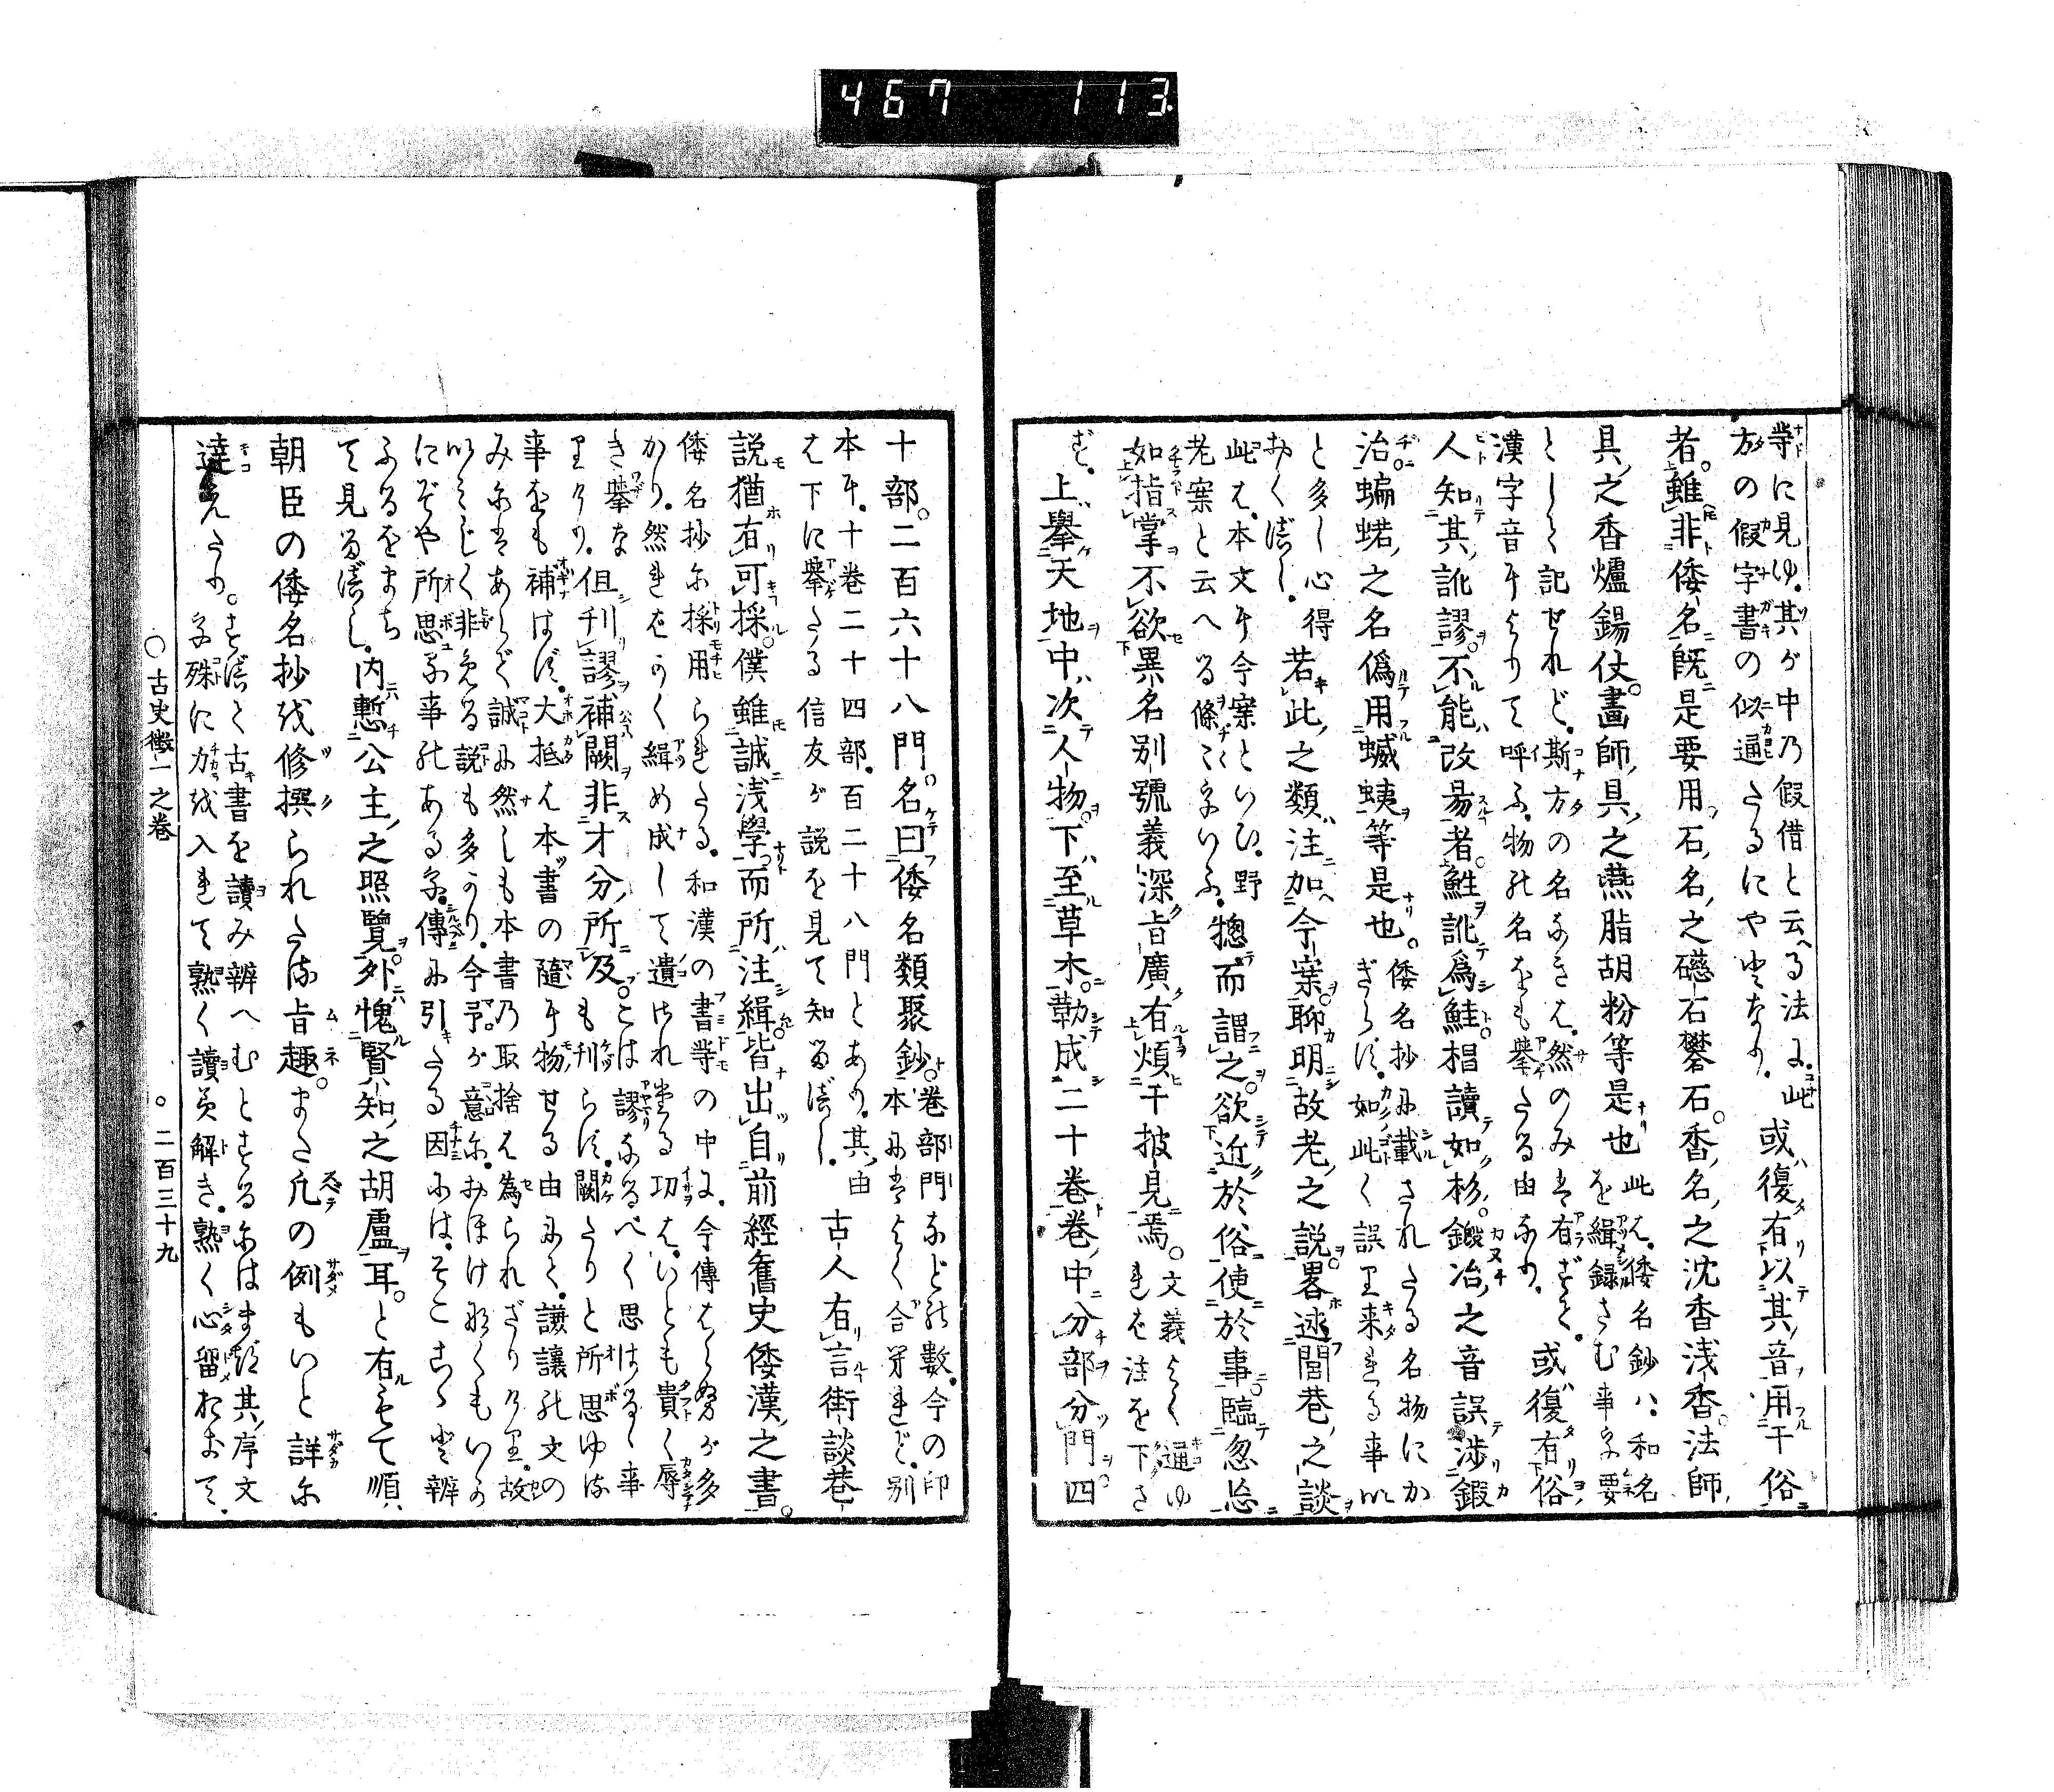 467 113
等に見ゆ。其が中乃假借と云へる法に此
方の假字書の似通たるにやとなり。
或復有以其音用于俗
者。雖非倭名既是要用石名之磁石礬石。香名之沈香浅香。法師
具之香爐錫仗。畫師具之燕脂胡粉等是也
此は倭名鈔ハ和名
を緝録さむ事を要
としと記せれど。斯方の名なきは然のみは有ざる。
漢字音によりて呼ふ物の名をも擧たる由なり。
或復有俗
人知其訛謬不能改易者。鮏訛爲鮭。椙讀如杉。鍛冶之音誤渉鍜
治。蝙蝠之名僞用蟙蛦等是也。
倭名抄に載されたる名物にか
ぎらず。如此く誤り来れる事
と多し心得
おくべし。
若此之類注加今案聊明故老之説畧述閭巷之談
此は本文に今案といひ野
老案と云へる條々をいふ。
揔而謂之欲近於俗使於事臨忽忘
如指掌不欲異名別號義深旨廣有煩于披見焉。
文義よく通ゆ
れば注を下さ
ず。
上擧天地中次人物下至草木勒成二十卷卷中分部分門四
十部。二百六十八門。名曰倭名類聚鈔。
卷部門などの數今の印
本にはよく合ざれど別
本に十卷二十四部百二十八門とあり。其由
は下に擧たる信友が説を見て知るべし。
古人有言街談巷
説猶有可採。僕雖誠浅學而所注緝皆出自前經舊史倭漢之書。
倭名抄に採用られたる和漢の書等の中に今傳はらぬが多
かり。然ればかく緝め成して遺されたる功はいとも貴く辱
き擧な
りけり。
但刊謬補闕非才分所及。
とは謬なるべく思はるゝ事
も刊らず闕たりと所思ゆる
事をも補はず大抵は本書の隨に物せる由にて謙讓の文の
みにはあらで誠に然しも本書乃取捨は為られざりけり。故
いみじく非免る説も多かり今予が意にはおほけなくもいか
にぞや所思る事のあるを傳に引たる因には。そこここと辨
ふるをまち
て見るべし。
内慙公主之照覽外愧賢知之胡盧耳。と有もて順
朝臣の倭名抄を修撰られたる旨趣。また凡の例もいと詳に
達えたり。
すべて古書を讀み辨へむとするにはまづ其序文
を殊に力を入れて熟く讀み解き熟く心留おきて
○古史徴一之卷
○二百三十九